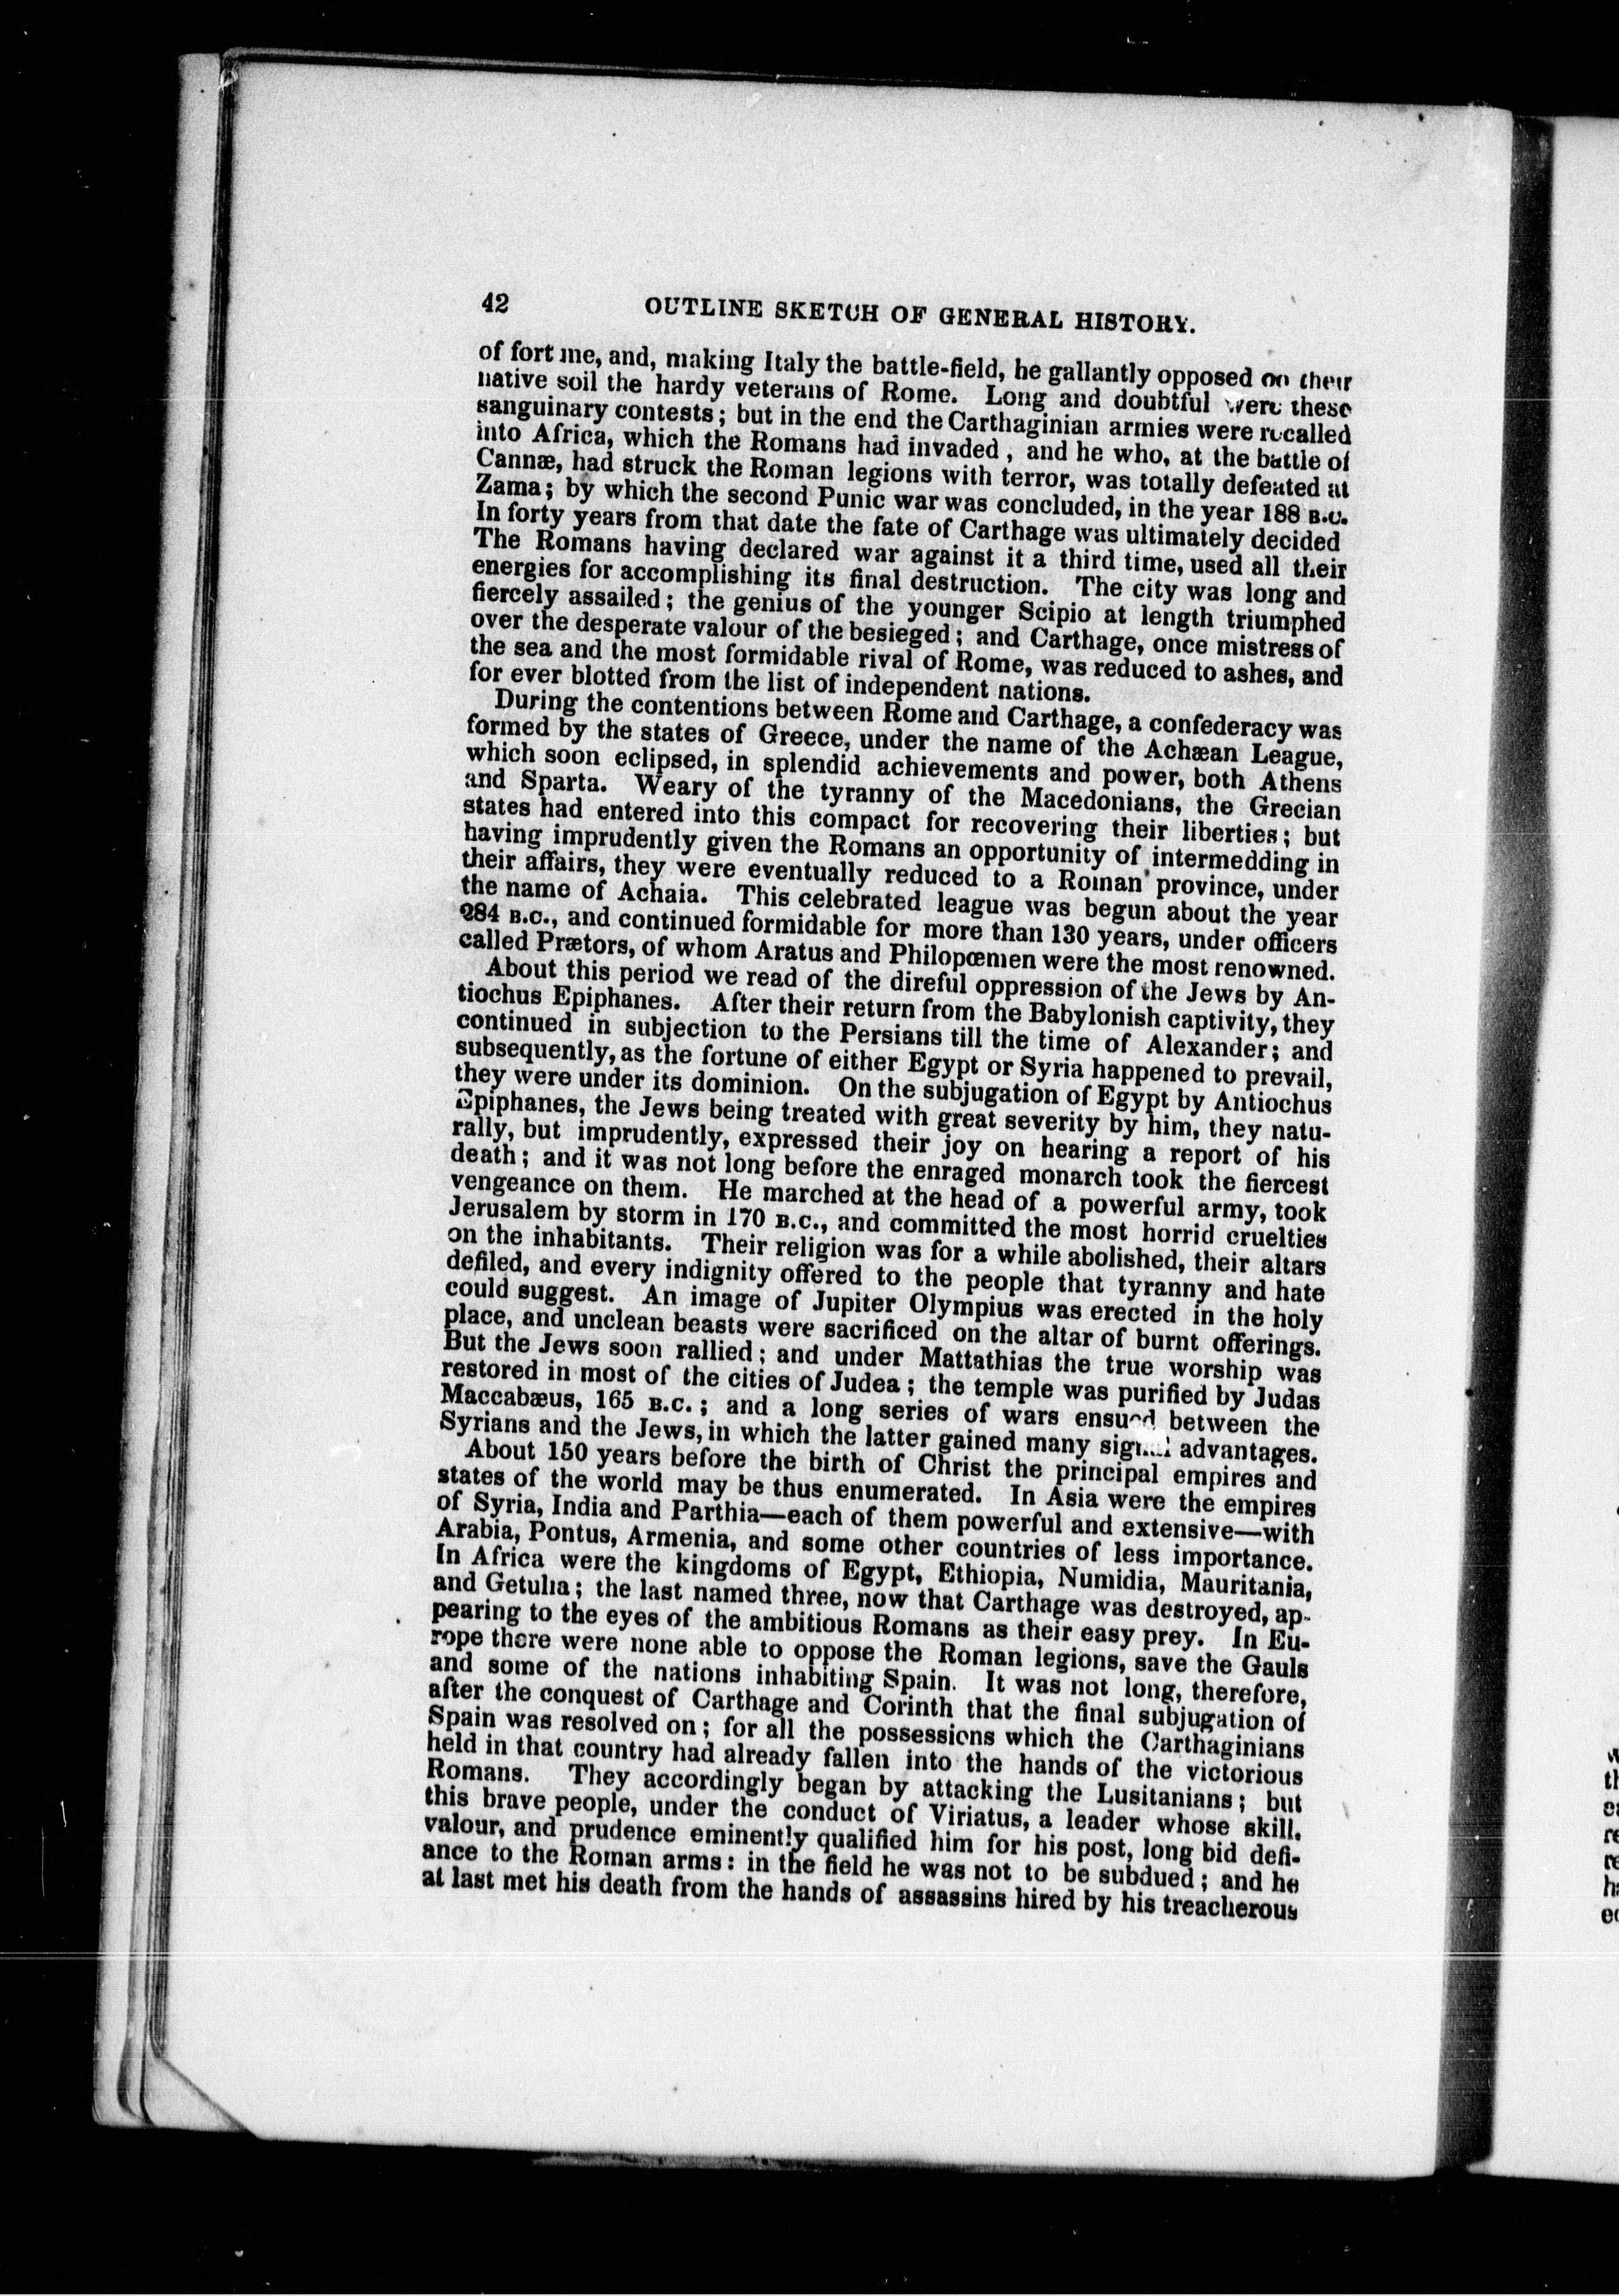 42 OUTLINE SKETCH OF GENERAL HISTORY.
of fort me, and, making Italy the battle-field, he gallantly opposed on their
native soil the hardy veterans of Rome. Long and doubtful were these
sanguinary contests; but in the end the Carthaginian armies were recalled
into Africa, which the Romans had invaded, and he who, at the battle of
Cannæ, had struck the Roman legions with terror, was totally defeated at
Zama; by which the second Punic war was concluded, in the year 188 B.C.
In forty years from that date the fate of Carthage was ultimately decided
The Romans having declared war against it a third time, used all their
energies for accomplishing its final destruction. The city was long and
fiercely assailed; the genius of the younger Scipio at length triumphed
over the desperate valour of the besieged; and Carthage, once mistress of
the sea and the most formidable rival of Rome, was reduced to ashes, and
for ever blotted from the list of independent nations.
During the contentions between Rome and Carthage, a confederacy was
formed by the states of Greece, under the name of the Achæan League,
which soon eclipsed, in splendid achievements and power, both Athens
and Sparta. Weary of the tyranny of the Macedonians, the Grecian
states had entered into this compact for recovering their liberties; but
having imprudently given the Romans an opportunity of intermedding in
their affairs, they were eventually reduced to a Roman province, under
the name of Achaia. This celebrated league was begun about the year
284 B.C., and continued formidable for more than 130 years, under officers
called Prætors, of whom Aratus and Philopœmen were the most renowned.
About this period we read of the direful oppression of the Jews by An-
tiochus Epiphanes. After their return from the Babylonish captivity, they
continued in subjection to the Persians till the time of Alexander; and
subsequently, as the fortune of either Egypt or Syria happened to prevail,
they were under its dominion. On the subjugation of Egypt by Antiochus
Epiphanes, the Jews being treated with great severity by him, they natu-
rally, but imprudently, expressed their joy on hearing a report of his
death; and it was not long before the enraged monarch took the fiercest
vengeance on them. He marched at the head of a powerful army, took
Jerusalem by storm in 170 B.C., and committed the most horrid cruelties
on the inhabitants. Their religion was for a while abolished, their altars
defiled, and every indignity offered to the people that tyranny and hate
could suggest. An image of Jupiter Olympius was erected in the holy
place, and unclean beasts were sacrificed on the altar of burnt offerings.
But the Jews soon rallied; and under Mattathias the true worship was
restored in most of the cities of Judea; the temple was purified by Judas
Maccabæus, 165 B.C.; and a long series of wars ensued between the
Syrians and the Jews, in which the latter gained many signal advantages.
About 150 years before the birth of Christ the principal empires and
states of the world may be thus enumerated. In Asia were the empires
of Syria, India and Parthia—each of them powerful and extensive—with
Arabia, Pontus, Armenia, and some other countries of less importance.
In Africa were the kingdoms of Egypt, Ethiopia, Numidia, Mauritania,
and Getulia; the last named three, now that Carthage was destroyed, ap-
pearing to the eyes of the ambitious Romans as their easy prey. In Eu-
rope there were none able to oppose the Roman legions, save the Gauls
and some of the nations inhabiting Spain. It was not long, therefore,
after the conquest of Carthage and Corinth that the final subjugation of
Spain was resolved on; for all the possessions which the Carthaginians
held in that country had already fallen into the hands of the victorious
Romans. They accordingly began by attacking the Lusitanians; but
this brave people, under the conduct of Viriatus, a leader whose skill,
valour, and prudence eminently qualified him for his post, long bid defi-
ance to the Roman arms: in the field he was not to be subdued; and he
at last met his death from the hands of assassins hired by his treacherous